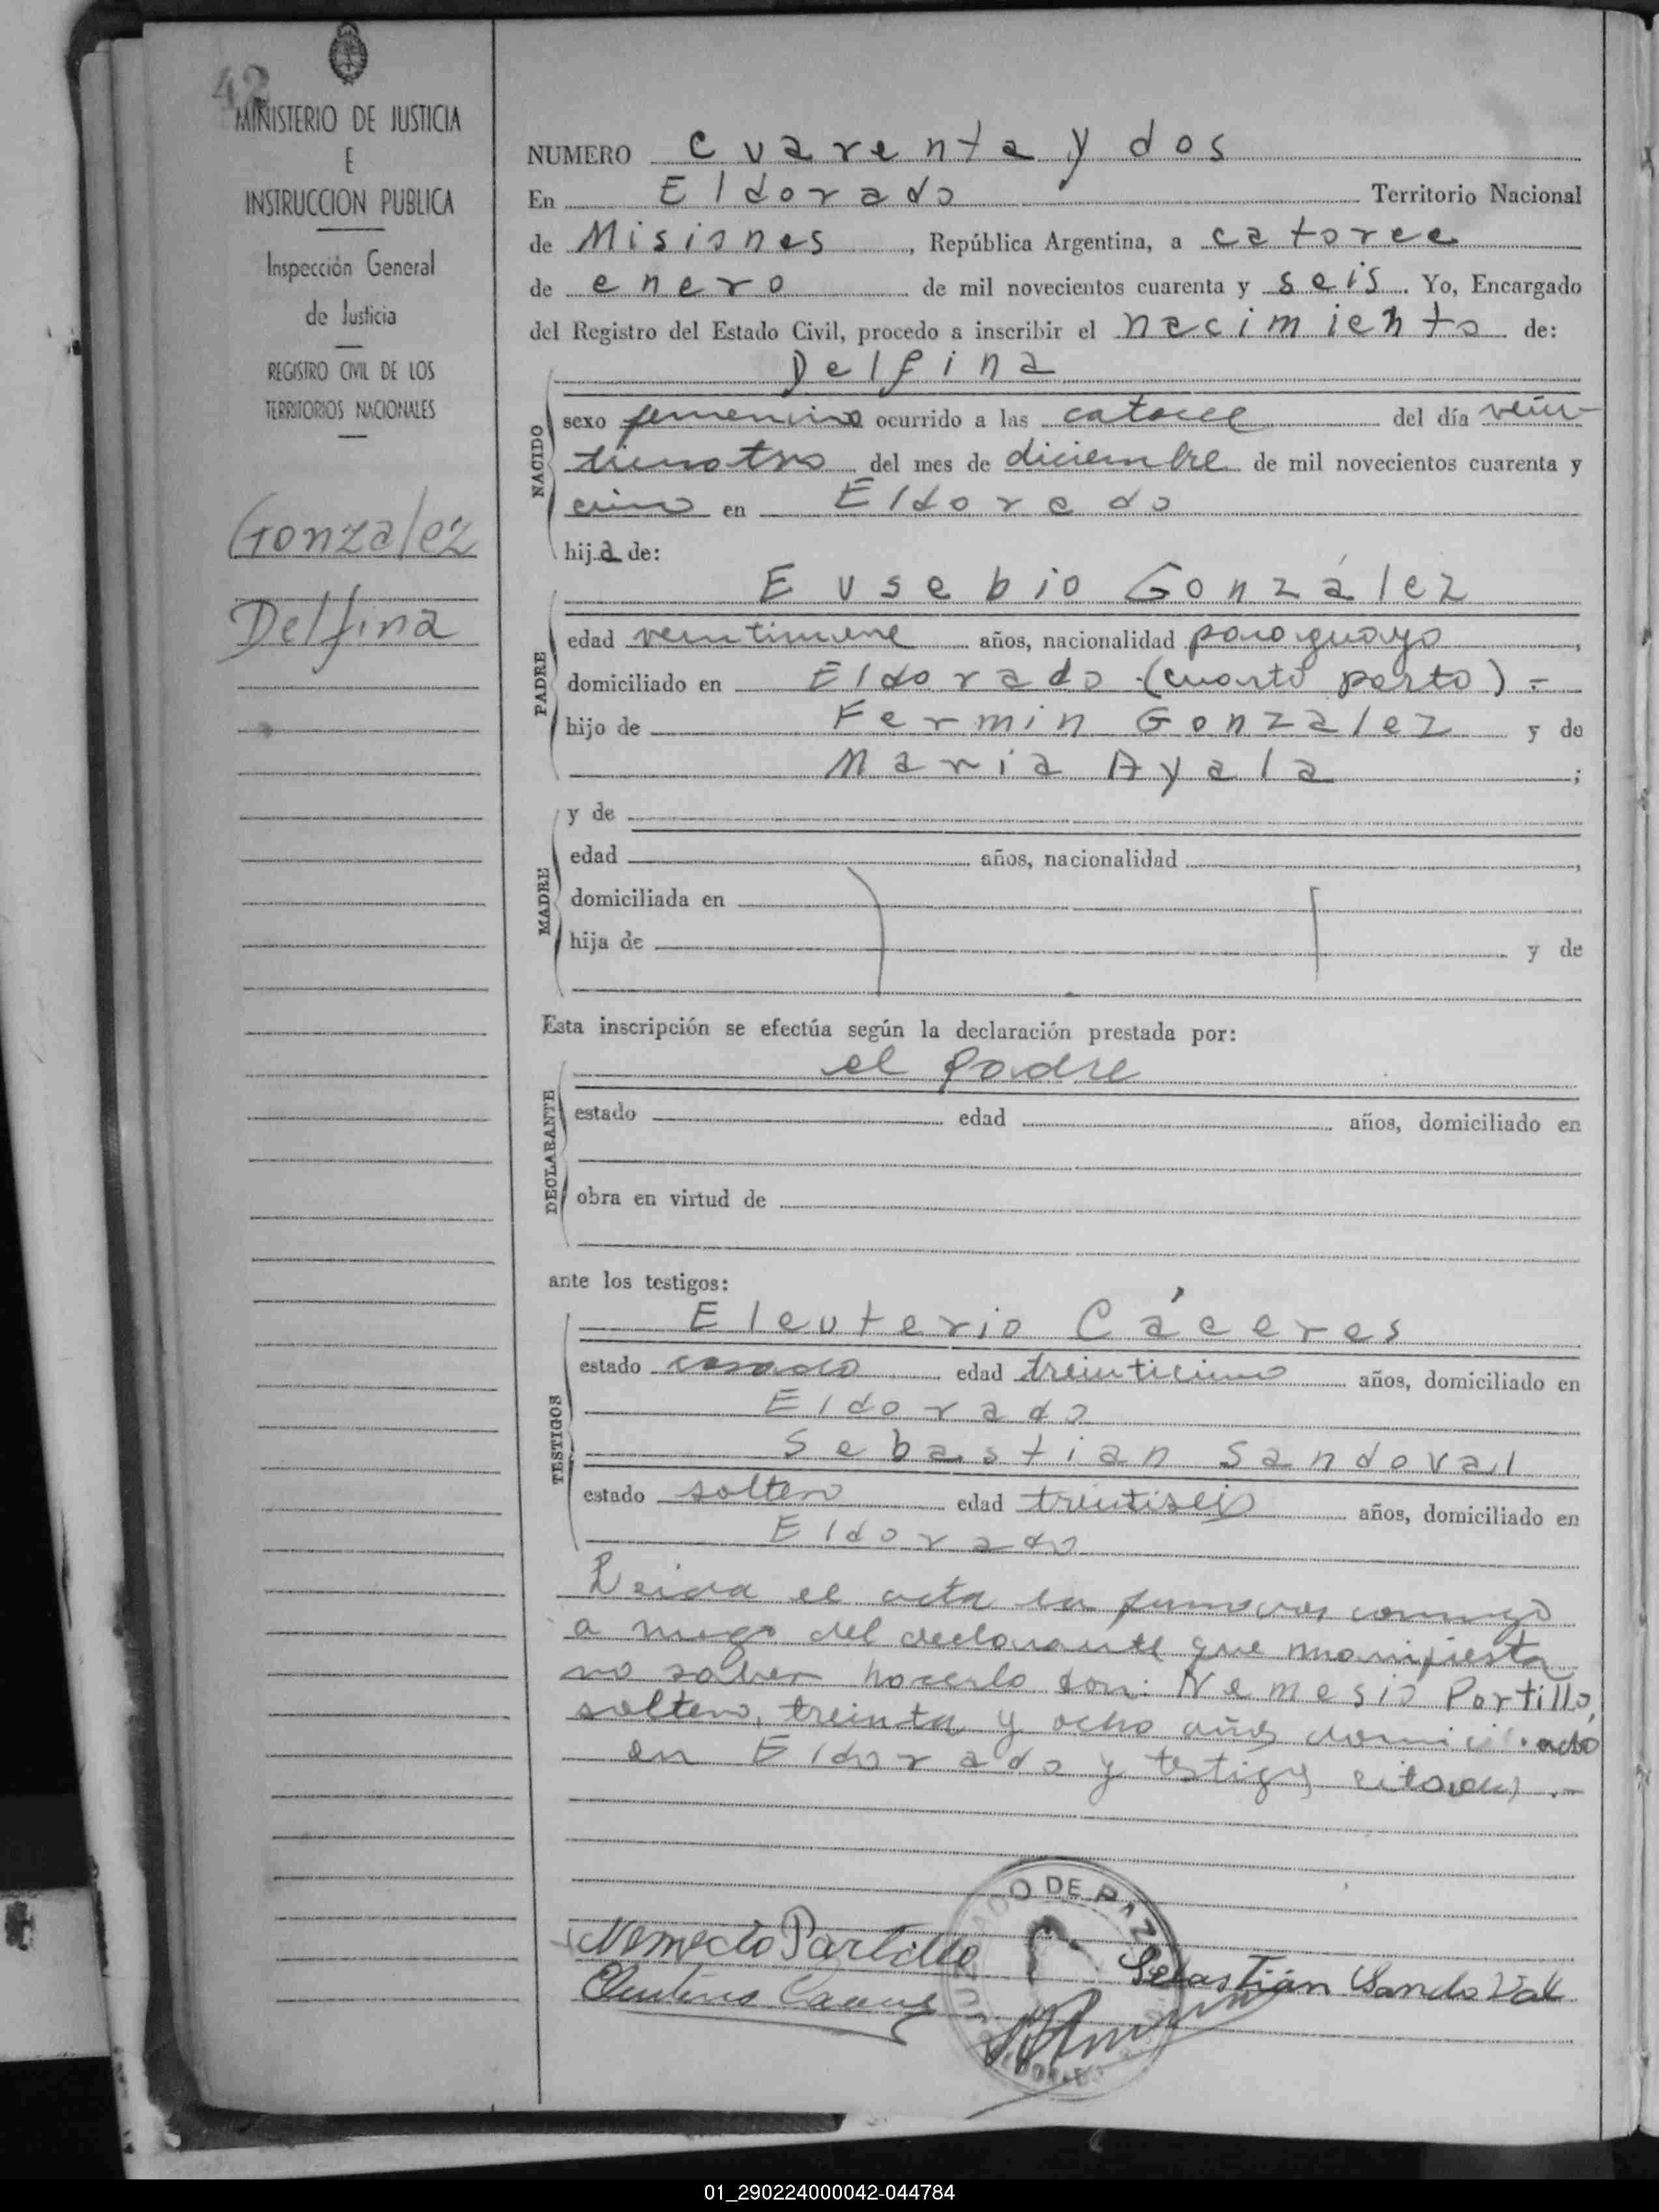 42
MINISTERIO DE JUSTICIA
E
INSTRUCCION PUBLICA
Inspección General
de Justicia
REGISTRO CIVIL DE LOS
TERRITORIOS NACIONALES
Gonzalez
Delfina
NUMERO cuarenta y dos
En Eldorado Territorio Nacional
de Misiones, República Argentina, a catorce
de enero de mil novecientos cuarenta y seis. Yo, Encargado
del Registro del Estado Civil, procedo a inscribir el nacimiento de:
NACIDO
Delfina
sexo femenino ocurrido a las catorce del día vein-
del mes de diciembre de mil novecientos cuarenta y
cinco en Eldorado
hija de:
PADRE
Eusebio González
edad veintinueve años, nacionalidad paraguayo,
domiciliado en Eldorado (cuarto parto) =
hijo de Fermin Gonzalez y de
Maria Ayala;
MADRE
y de
edad años, nacionalidad ,
domiciliada en
hija de y de
Esta inscripción se efectúa según la declaración prestada por:
DECLARANTE
el padre
estado edad años, domiciliado en
obra en virtud de
ante los testigos:
TESTIGOS
Eleuterio Cáceres
estado casado edad treinticinco años, domiciliado en
Eldorado
Sebastian Sandoval
estado soltero edad treintiseis años, domiciliado en
Eldorado
Leida el acta la conmigo
a ruego del declarante que manifiesta
no saber hacerlo don: Nemesio Portillo,
soltero, treinta y ocho años domiciliado
en Eldorado y testigos citados.-
DE PAZ
Portillo
Sebastián Sandoval
01_290224000042-044784